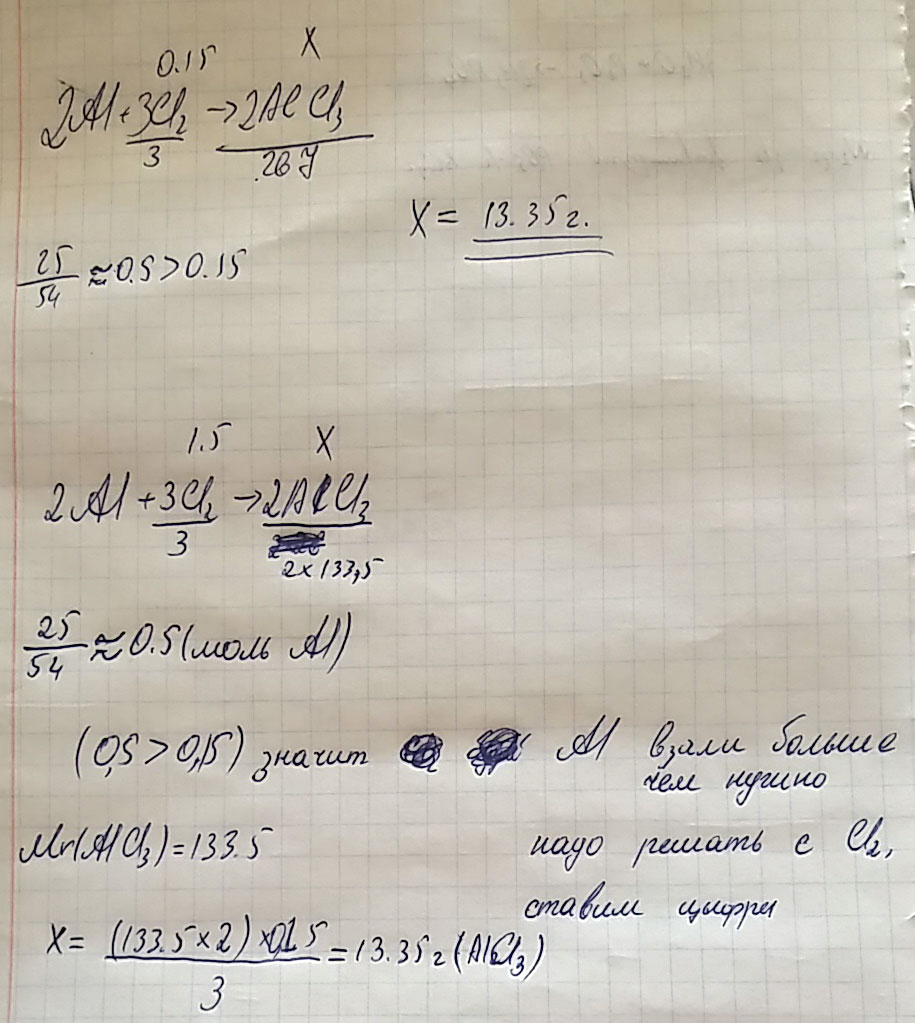 0.15 X
2Al + 3Cl₂ → 2AlCl₃
3 267
X = 13.35 г.
25/54 ≈ 0.5 > 0.15
1.5 X
2Al + 3Cl₂ → 2AlCl₃
3 2×133,5
25/54 ≈ 0.5 (моль Al)
(0,5 > 0,15) значит Al взяли больше
чем нужно
Mr(AlCl₃) = 133.5 надо решать с Cl₂,
ставим цифры
X = (133.5 × 2) × 0.15 / 3 = 13.35 г (AlCl₃)